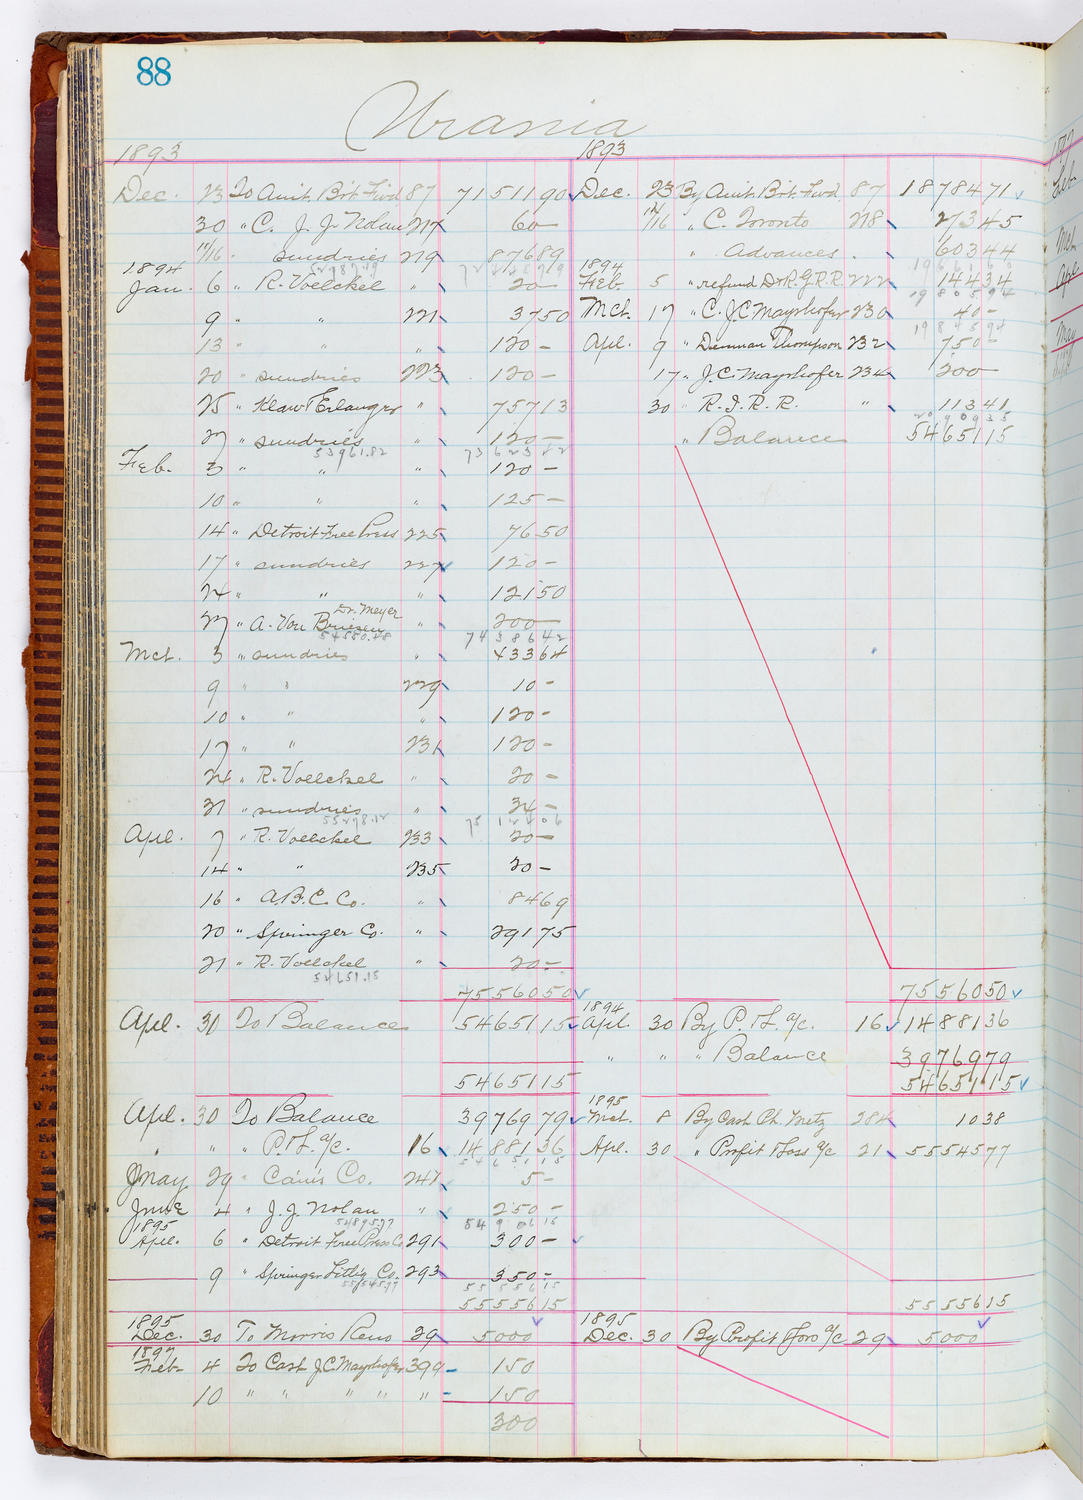 88
Urania
1893 1893
Dec. 23 To Amt. Brt. Fwd 87 71511 90 Dec. 23 By Amt. Brt. Fwd 87 18784 71
30 " C. J. J. Nolan 217 60 — 12/16 " C. Toronto 218 273 45
12/16 " sundries 219 876 89 " Advances " 603 44
1894 1894
Jan. 6 " R. Voelckel " 20 — Feb. 5 " refund D & R. G. R.R. 222 144 34
9 " " 221 37 50 Mch. 17 " C. J. C. Mayrhofer 230 40 —
13 " " " 120 — Apl. 9 " Denman Thompson 232 750 —
20 " sundries 223 120 — 17 " J. C. Mayrhofer 234 200
25 " Klaw & Erlanger " 757 13 30 " R. I. R. R. " 113 41
27 " sundries " 120 — " Balance 54651 15
53961.82 73 623 82
Feb. 3 " " " 120 —
10 " " " 125 —
14 " Detroit Free Press 225 76 50
17 " sundries 227 120 —
24 " " " 121 50
Dr. Meyer
27 " A. Von Briesen " 200
74 386 42
Mch. 3 " sundries " 433 64
9 " " 229 10 —
10 " " " 120 —
17 " " 231 120 —
24 " R. Voelckel " 20 —
31 " sundries " 34 —
55278.12
Apl. 7 " R. Voelckel 233 20 —
14 " " 235 20 —
16 " A. B. C. Co. " 84 69
20 " Springer Co. " 291 75
21 " R. Voelckel " 20 —
54651.15
75560 50 75560 50
1894
Apl. 30 To Balance 54651 15 Apl. 30 By P. & L. a/c. 16 14881 36
" " " Balance 39769 79
54651 15 54651 15
1895
Apl. 30 To Balance 39769 79 Mch. 8 By Cash Ch. Metz 284 10 38
" " " P. & L. a/c. 16 14881 36 Apl. 30 " Profit & Loss a/c 21 55545 77
54651 15
May 29 " Cain's Co. 247 5 —
June 4 " J. J. Nolan " 250 —
54895.77 54 906 15
1895
Apl. 6 " Detroit Free Press Co 291 300 —
9 " Springer Litho. Co. 293 350 —
55545.77 55 556 15
55556 15 55556 15
1895 1895
Dec. 30 To Morris Reno 29 50 00 Dec. 30 By Profit & Loss a/c 29 50 00
1897
Feb. 4 To Cash J. C. Mayrhofer 399 1 50
10 " " " " " 1 50
3 00